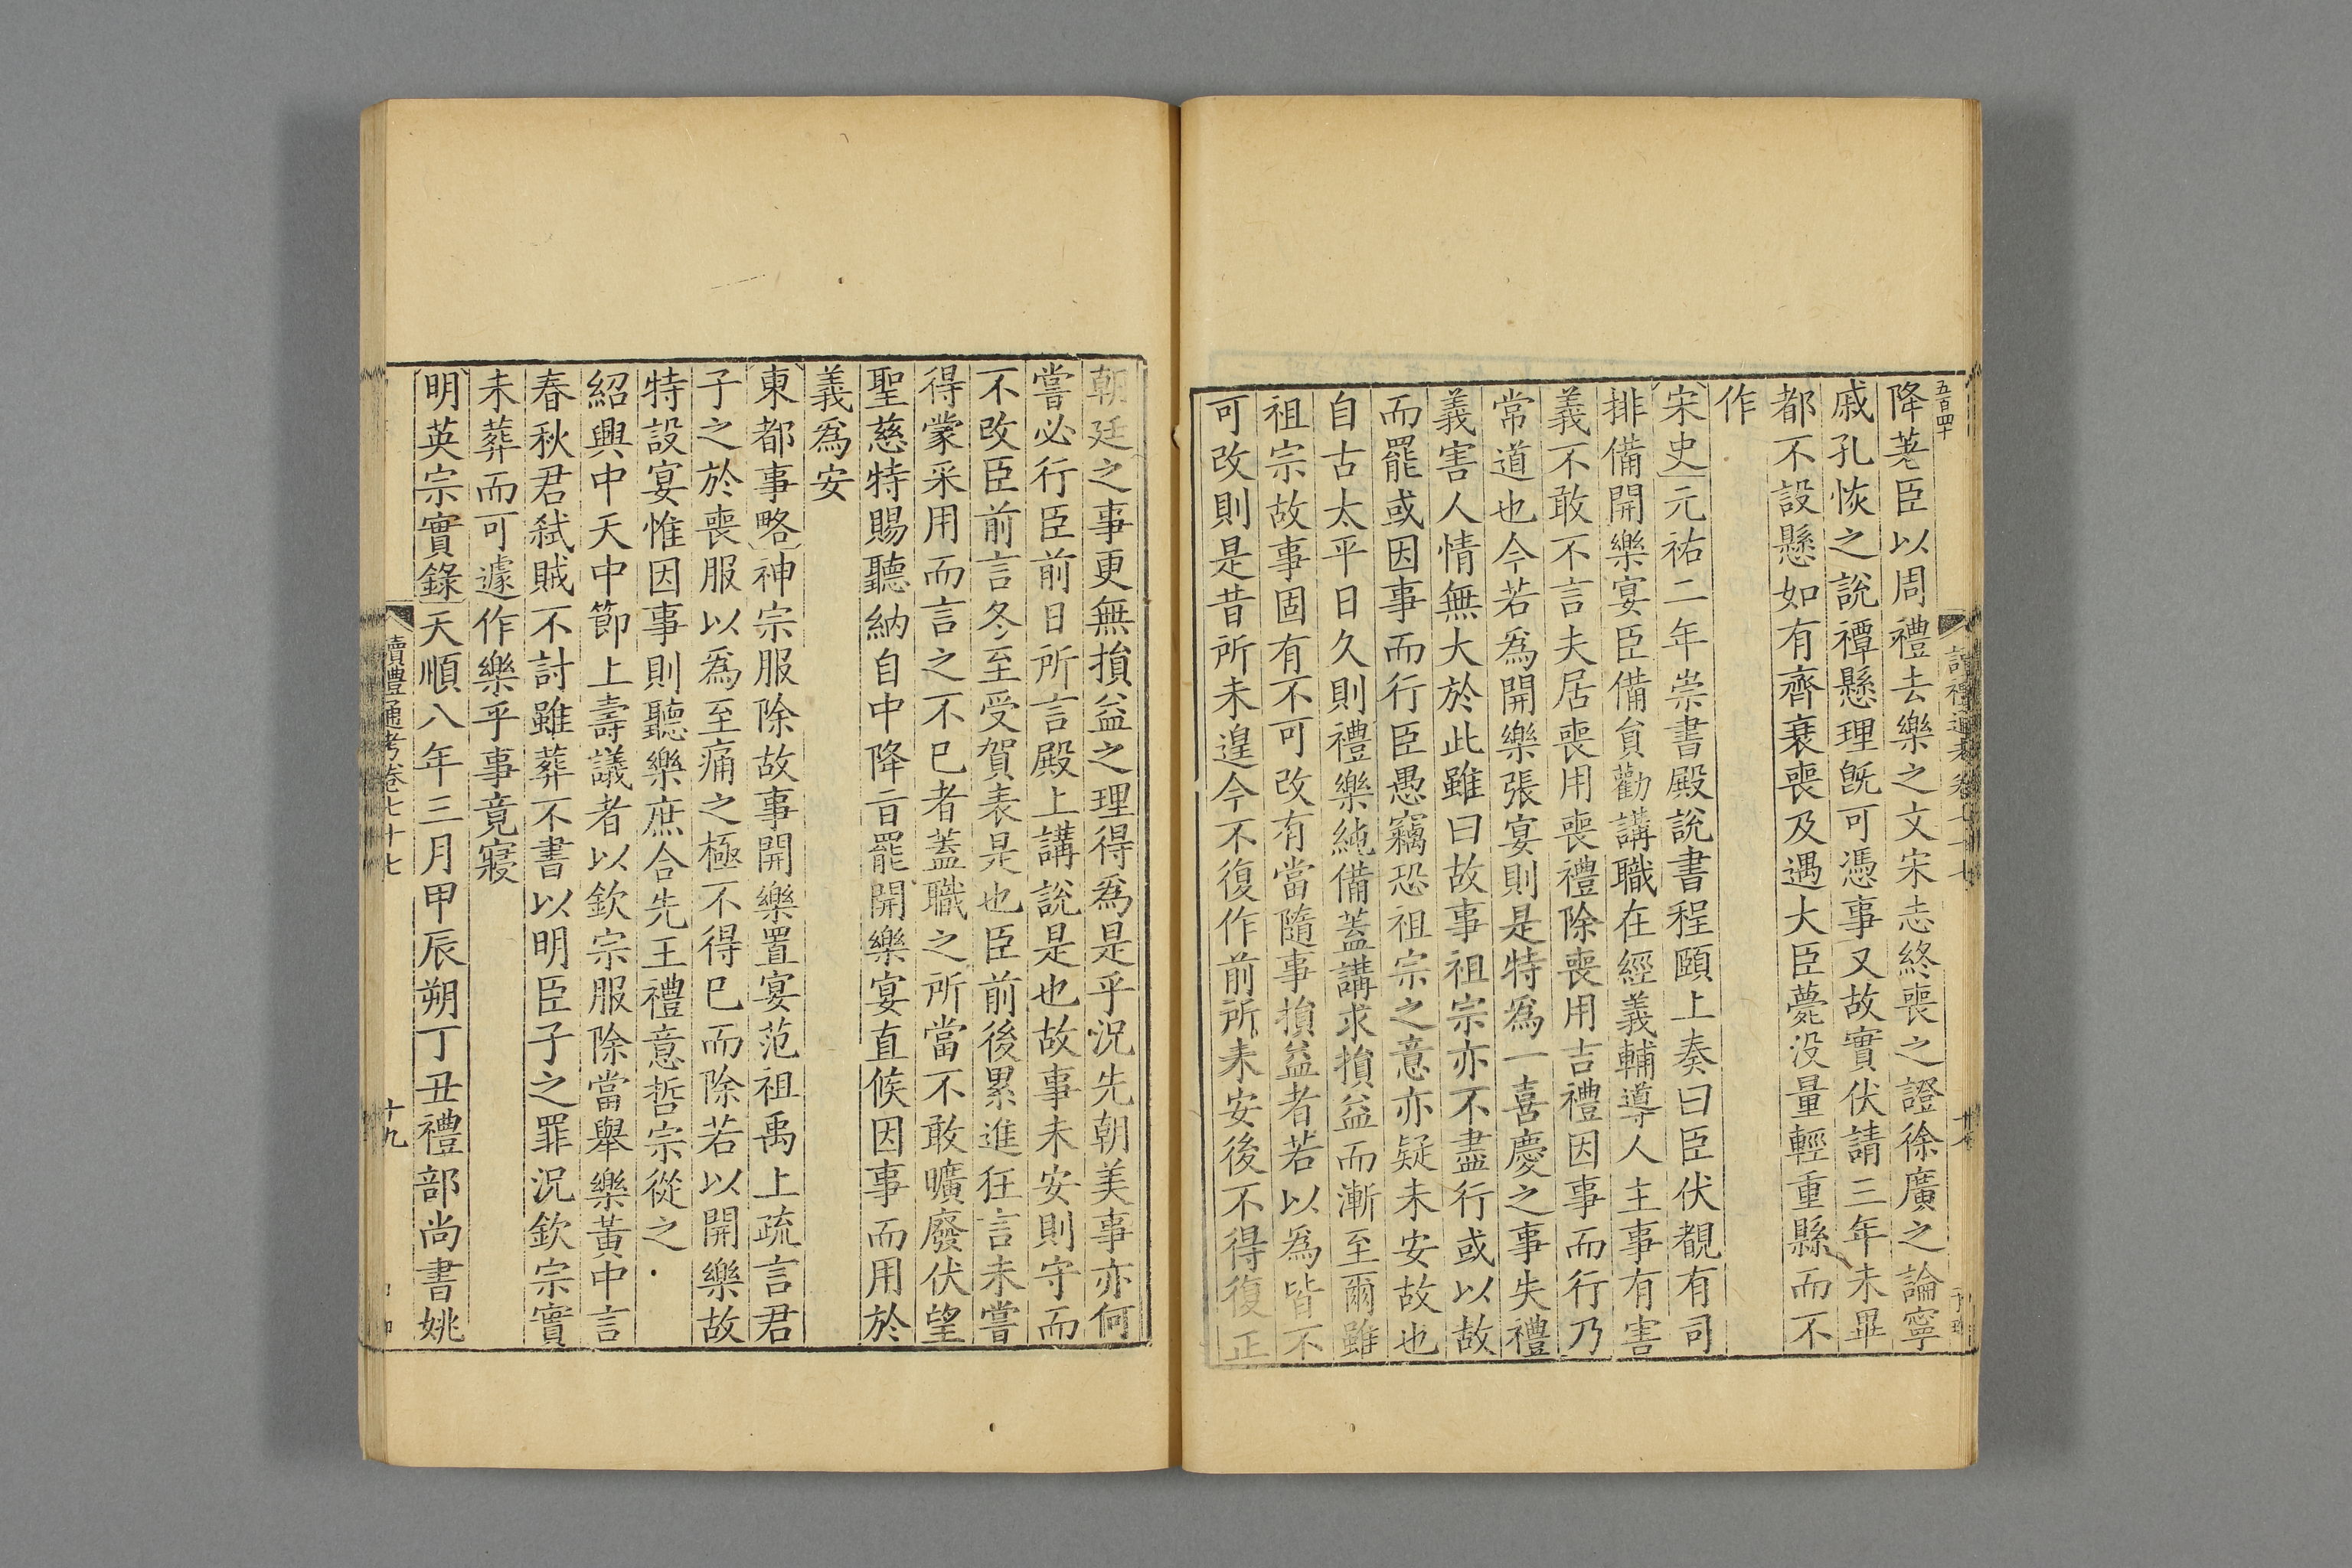 五百四十
降苫臣以周禮去樂之文宋志終喪之證徐廣之論寧
戚孔恢之說禫懸理旣可憑事又故實伏請三年未畢
都不設懸如有齊衰喪及遇大臣薨没量輕重縣而不
作
宋史元祐二年崇書殿說書程頤上奏曰臣伏覩有司
排備開樂宴臣備貟勸講職在經義輔導人主事有害
義不敢不言夫居喪用喪禮除喪用吉禮因事而行乃
常道也今若爲開樂張宴則是特爲一喜慶之事失禮
義害人情無大於此雖曰故事祖宗亦不盡行或以故
而罷或因事而行臣愚竊恐祖宗之意亦疑未安故也
自古太平日久則禮樂純備蓋講求損益而漸至爾雖
祖宗故事固有不可改有當隨事損益者若以爲皆不
可改則是昔所未遑今不復作前所未安後不得復正
朝廷之事更無損益之理得爲是乎況先朝美事亦何
嘗必行臣前日所言殿上講說是也故事未安則守而
不改臣前言冬至受賀表是也臣前後累進狂言未嘗
得蒙采用而言之不已者蓋職之所當不敢曠廢伏望
聖慈特賜聽納自中降旨罷開樂宴直候因事而用於
義爲安
東都事略神宗服除故事開樂置宴范祖禹上疏言君
子之於喪服以爲至痛之極不得已而除若以開樂故
特設宴惟因事則聽樂庶合先王禮意哲宗從之
紹興中天中節上壽議者以欽宗服除當舉樂黃中言
春秋君弑賊不討雖葬不書以明臣子之罪況欽宗實
未葬而可遽作樂乎事竟寢
明英宗實錄天順八年三月甲辰朔丁丑禮部尚書姚
讀禮通考卷七十七
十九